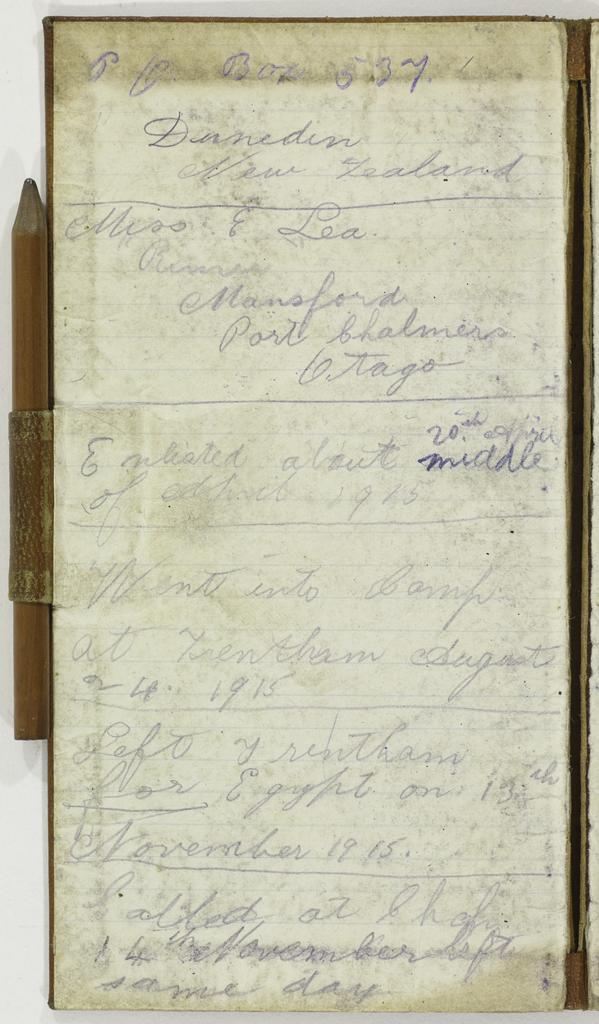 P O. Box 537.
Dunedin
New Zealand
Miss E Lea.
Mansford
Port Chalmers
Otago
20th April
Enlisted about middle
of April 1915
Went into Camp
at Trentham August
24. 1915
Left Trentham
for Egypt on 13th
November 1915.
Called at Ch
14th November left
same day